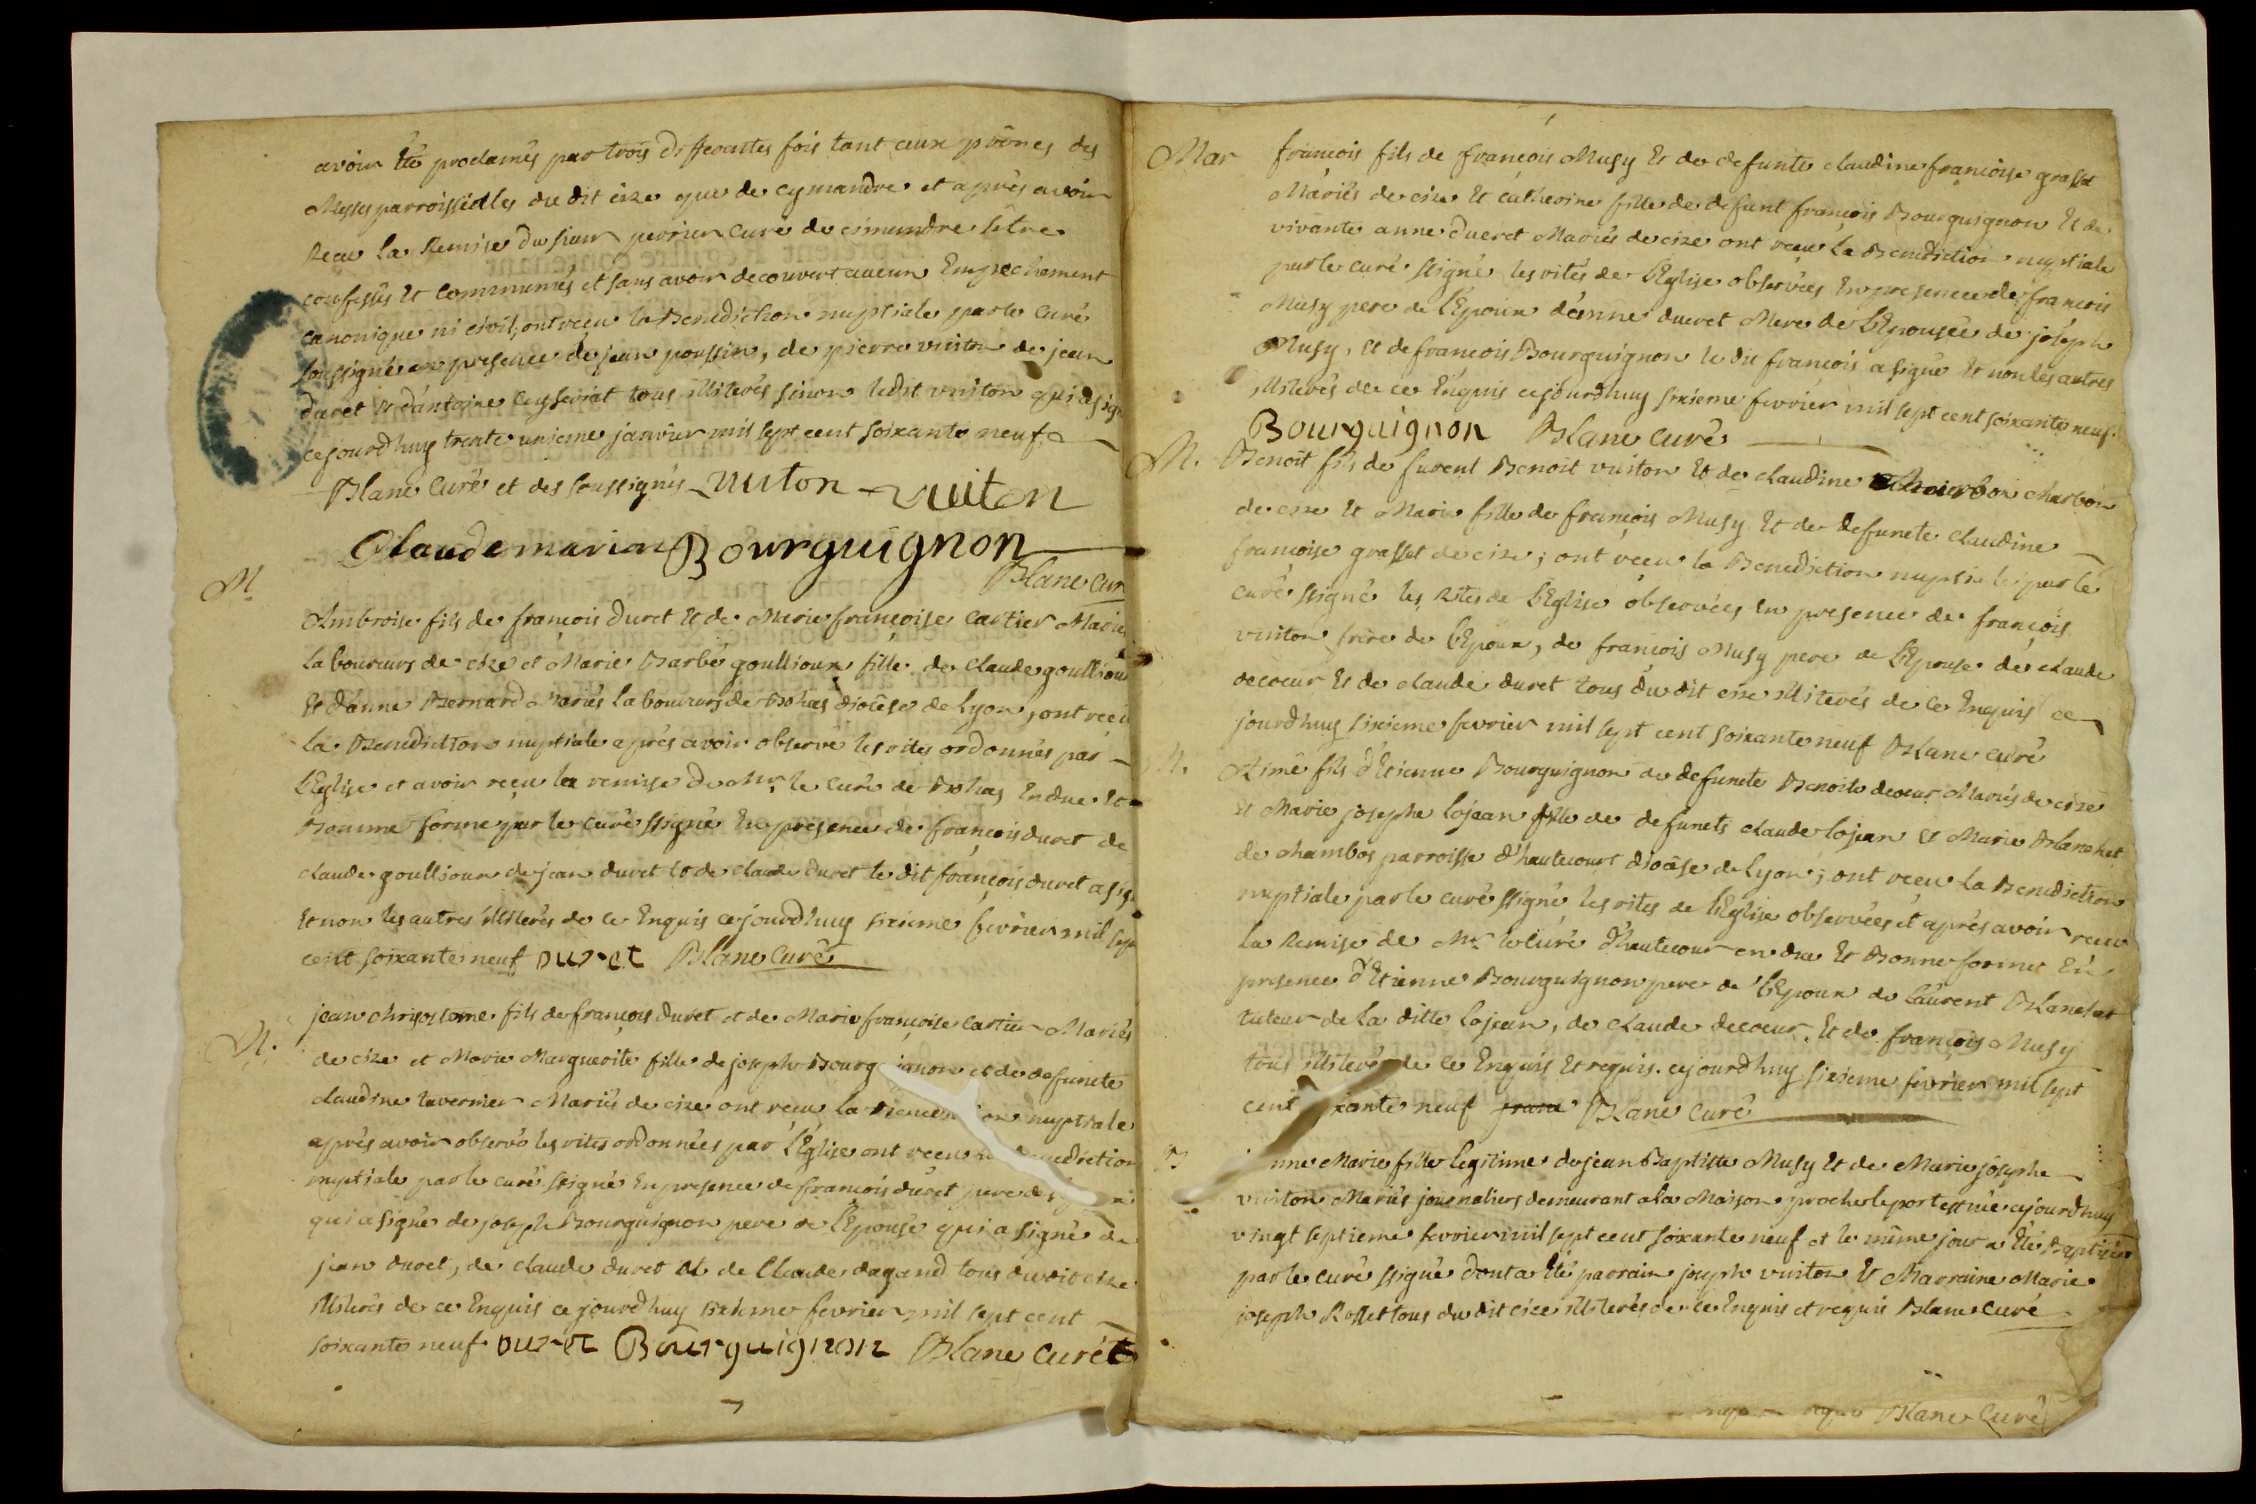 avoir été proclamés par trois differentes fois tant aux prônes des
Messes parroissialles du dit cize que de cymandre et après avoir
Receu la Remise du sieur perrier curé de cimandre s'être
confessés Et communiés et sans avoir decouvert aucun Empechement
canonique ni civil, ont reçu la Benediction nuptiale par le curé
soussigné en presence de jean poussin, de pierre vuiton de jean
duret et d'antoine tous illiterés sinon ledit vuiton qui a sig
cejourdhuy trente unieme janvier mil sept cent soixante neuf
Blanc Curé et des soussignés vuiton vuiton
Claude marian Bourguignon
Blanc cur
M.
Ambroise fils de françois duret Et de Marie françoise cartier Mariés
laboureurs de cize et Marie Barbe goullioux fille de claude goullioux
Et d'anne Bernard Mariés laboureurs de Bohas diocèse de Lyon, ont receu
la Benediction nuptiale après avoir observé les rites ordonnés par
l'Eglise et avoir reçu la remise de Mr le curé de Bohas En due Et
Bonne forme par le curé ssigné En presence de françois duret de
claude goullioux de jean duret Et de claude duret le dit françois duret a sig
Et non les autres illiterés de ce Enquis cejourdhuy sixieme fevrier mil sept
cent soixante neuf duret Blanc Curé
M.
jean chrisostome fils de françois duret et de Marie françoise cartier Mariés
de cize et Marie Marguerite fille de joseph Bourg ignon et de defuncte
claudine tavernier Mariés de cize ont receu la Bene on nuptiale
après avoir observé les rites ordonnées par l'Église ont receu la Benediction
nuptiale par le curé ssigné En presence de françois duret pere de
qui a signé de joseph Bourguignon pere de l'Epouse qui a signé de
jean duret, de claude duret Et de Claude dagand tous dudit cize
illiterés de ce Enquis ce jourdhuy sixieme fevrier mil sept cent
soixante neuf duret Bourguignon Blanc curé
Mar
françois fils de françois Musy Et de defunte claudine françoise grasset
Mariés de cize Et catherine fille de defunt françois Bourguignon Et de
vivante anne duret Mariés de cize ont receu la Benediction nuptiale
par le curé ssigné les rites de l'Eglise observées En presence de françois
Musy pere de l'Epoux d'anne duret Mere de l'Epousée de joseph
Musy, et de françois Bourguignon le dit françois a signé Et non les autres
illiterés de ce Enquis cejourdhuy sixieme fevrier mil sept cent soixante neuf.
Bourguignon Blanc curé
M.
Benoit fils de furent Benoit vuiton Et de claudine charbon
de cize Et Marie fille de françois Musy Et de defuncte claudine
françoise grasset de cize; ont receu la Benediction nuptiale par le
curé ssigné les rites de l'Eglise observées En presence de françois
vuiton frère de l'Epoux, de françois Musy pere de l'Epouse de claude
decoeur Et de claude duret tous du dit cize illiterés de ce Enquis ce
jourdhuy sixieme fevrier mil sept cent soixante neuf Blanc curé
M.
Aimé fils d'Etienne Bourguignon de defuncte Benoite decoeur Mariés de cize
Et Marie josephe lojean fille de defuncts claude lojean et Marie Blanchet
de chambos parroisse d'hautecourt diocêse de Lyon; ont receu la Benediction
nuptiale par le curé ssigné les rites de l'Eglise observées et après avoir receu
la Remise de Mr le curé d'hautecour en due Et Bonne forme En
presence d'Etienne Bourguignon pere de l'Epoux de laurent Blanchet
tuteur de la ditte lojean, de claude decoeur, Et de françois Musy
tous illiterés de ce Enquis Et requis. cejourdhuy sixieme fevrier mil sept
cent xante neuf Blanc curé
B
nne Marie fille legitime de jean Baptiste Musy Et de Marie josephe
vuiton Mariés journaliers demeurant a la Maison proche le port est née cejourdhuy
vingt septieme fevrier mil sept cent soixante neuf et le même jour a Été Baptizée
par le curé ssigné dont a Eté parrain joseph vuiton Et Marraine Marie
joseph Rosset tous du dit cize illiterés de ce Enquis et requis Blanc curé
Blanc Curé